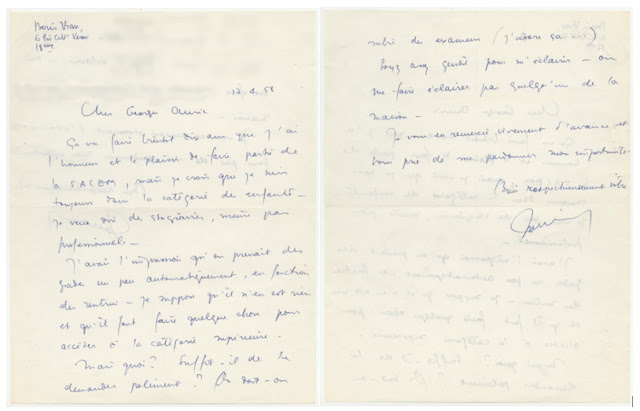 Boris Vian,
6 bis Cité Véron
18ème
12.4.58
Cher Georges Auric
Ça va faire bientôt dix ans que j'ai
l'honneur et le plaisir de faire partie
de la SACEM, mais je crois que je suis
toujours dans la catégorie des enfants -
Je veux dire des stagiaires, même pas
professionnels -
J'avais l'impression qu'on prenait des
grades un peu automatiquement, en fonction
des rentrées - je suppose qu'il n'en est rien
et qu'il faut faire quelque chose pour
accéder à la catégorie supérieure.
Mais quoi? Suffit-il de le
demander poliment? Ou doit-on
subir des examens (j'adore ça -)
Soyez assez gentil pour m'éclairer - ou
me faire éclairer par quelqu'un de la
maison -
Je vous en remercie vivement d'avance et
vous prie de me pardonner mon importunité.
Bien respectueusement vôtre